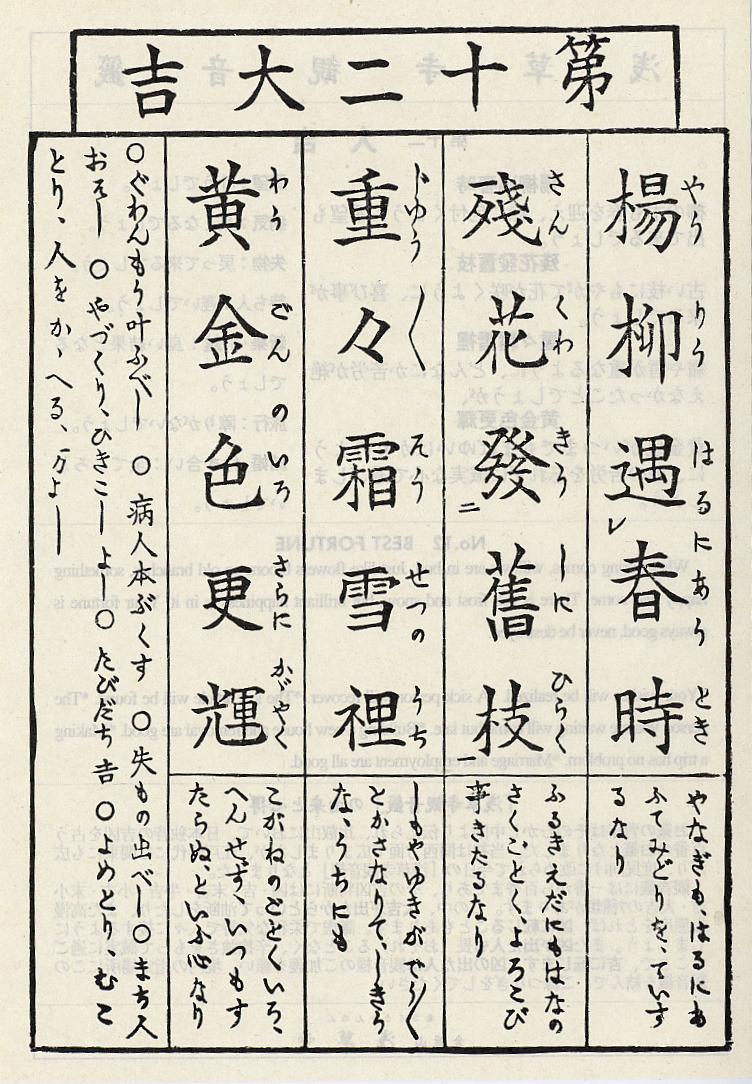 第十二大吉
楊柳遇春時
やうりうはるにあうとき
レ
やなぎも、はるにあ
ふてみどりをていす
るなり
殘花發舊枝
さんくわきうしにひらく
二 一
ふるきえだにもはなの
さくごとく、よろこび
事きたるな、
重々霜雪裡
ぢゆう〳〵そうせつのうち
しもやゆきが、ぢう〳〵
とかさなりて、しきり
な、うちにも
黄金色更輝
わうごんのいろさらにかゞやく
こがねのごとくいろ、
へんせず、いつもす
たらぬ、といふ心なり
〇ぐわんもう叶ふべし 〇病人本ぶくす 〇失もの出べし〇まち人
おそし〇やづくり、ひきこしよし〇たびだち吉〇よめとりむこ
とり、人をかゝへる、万よし